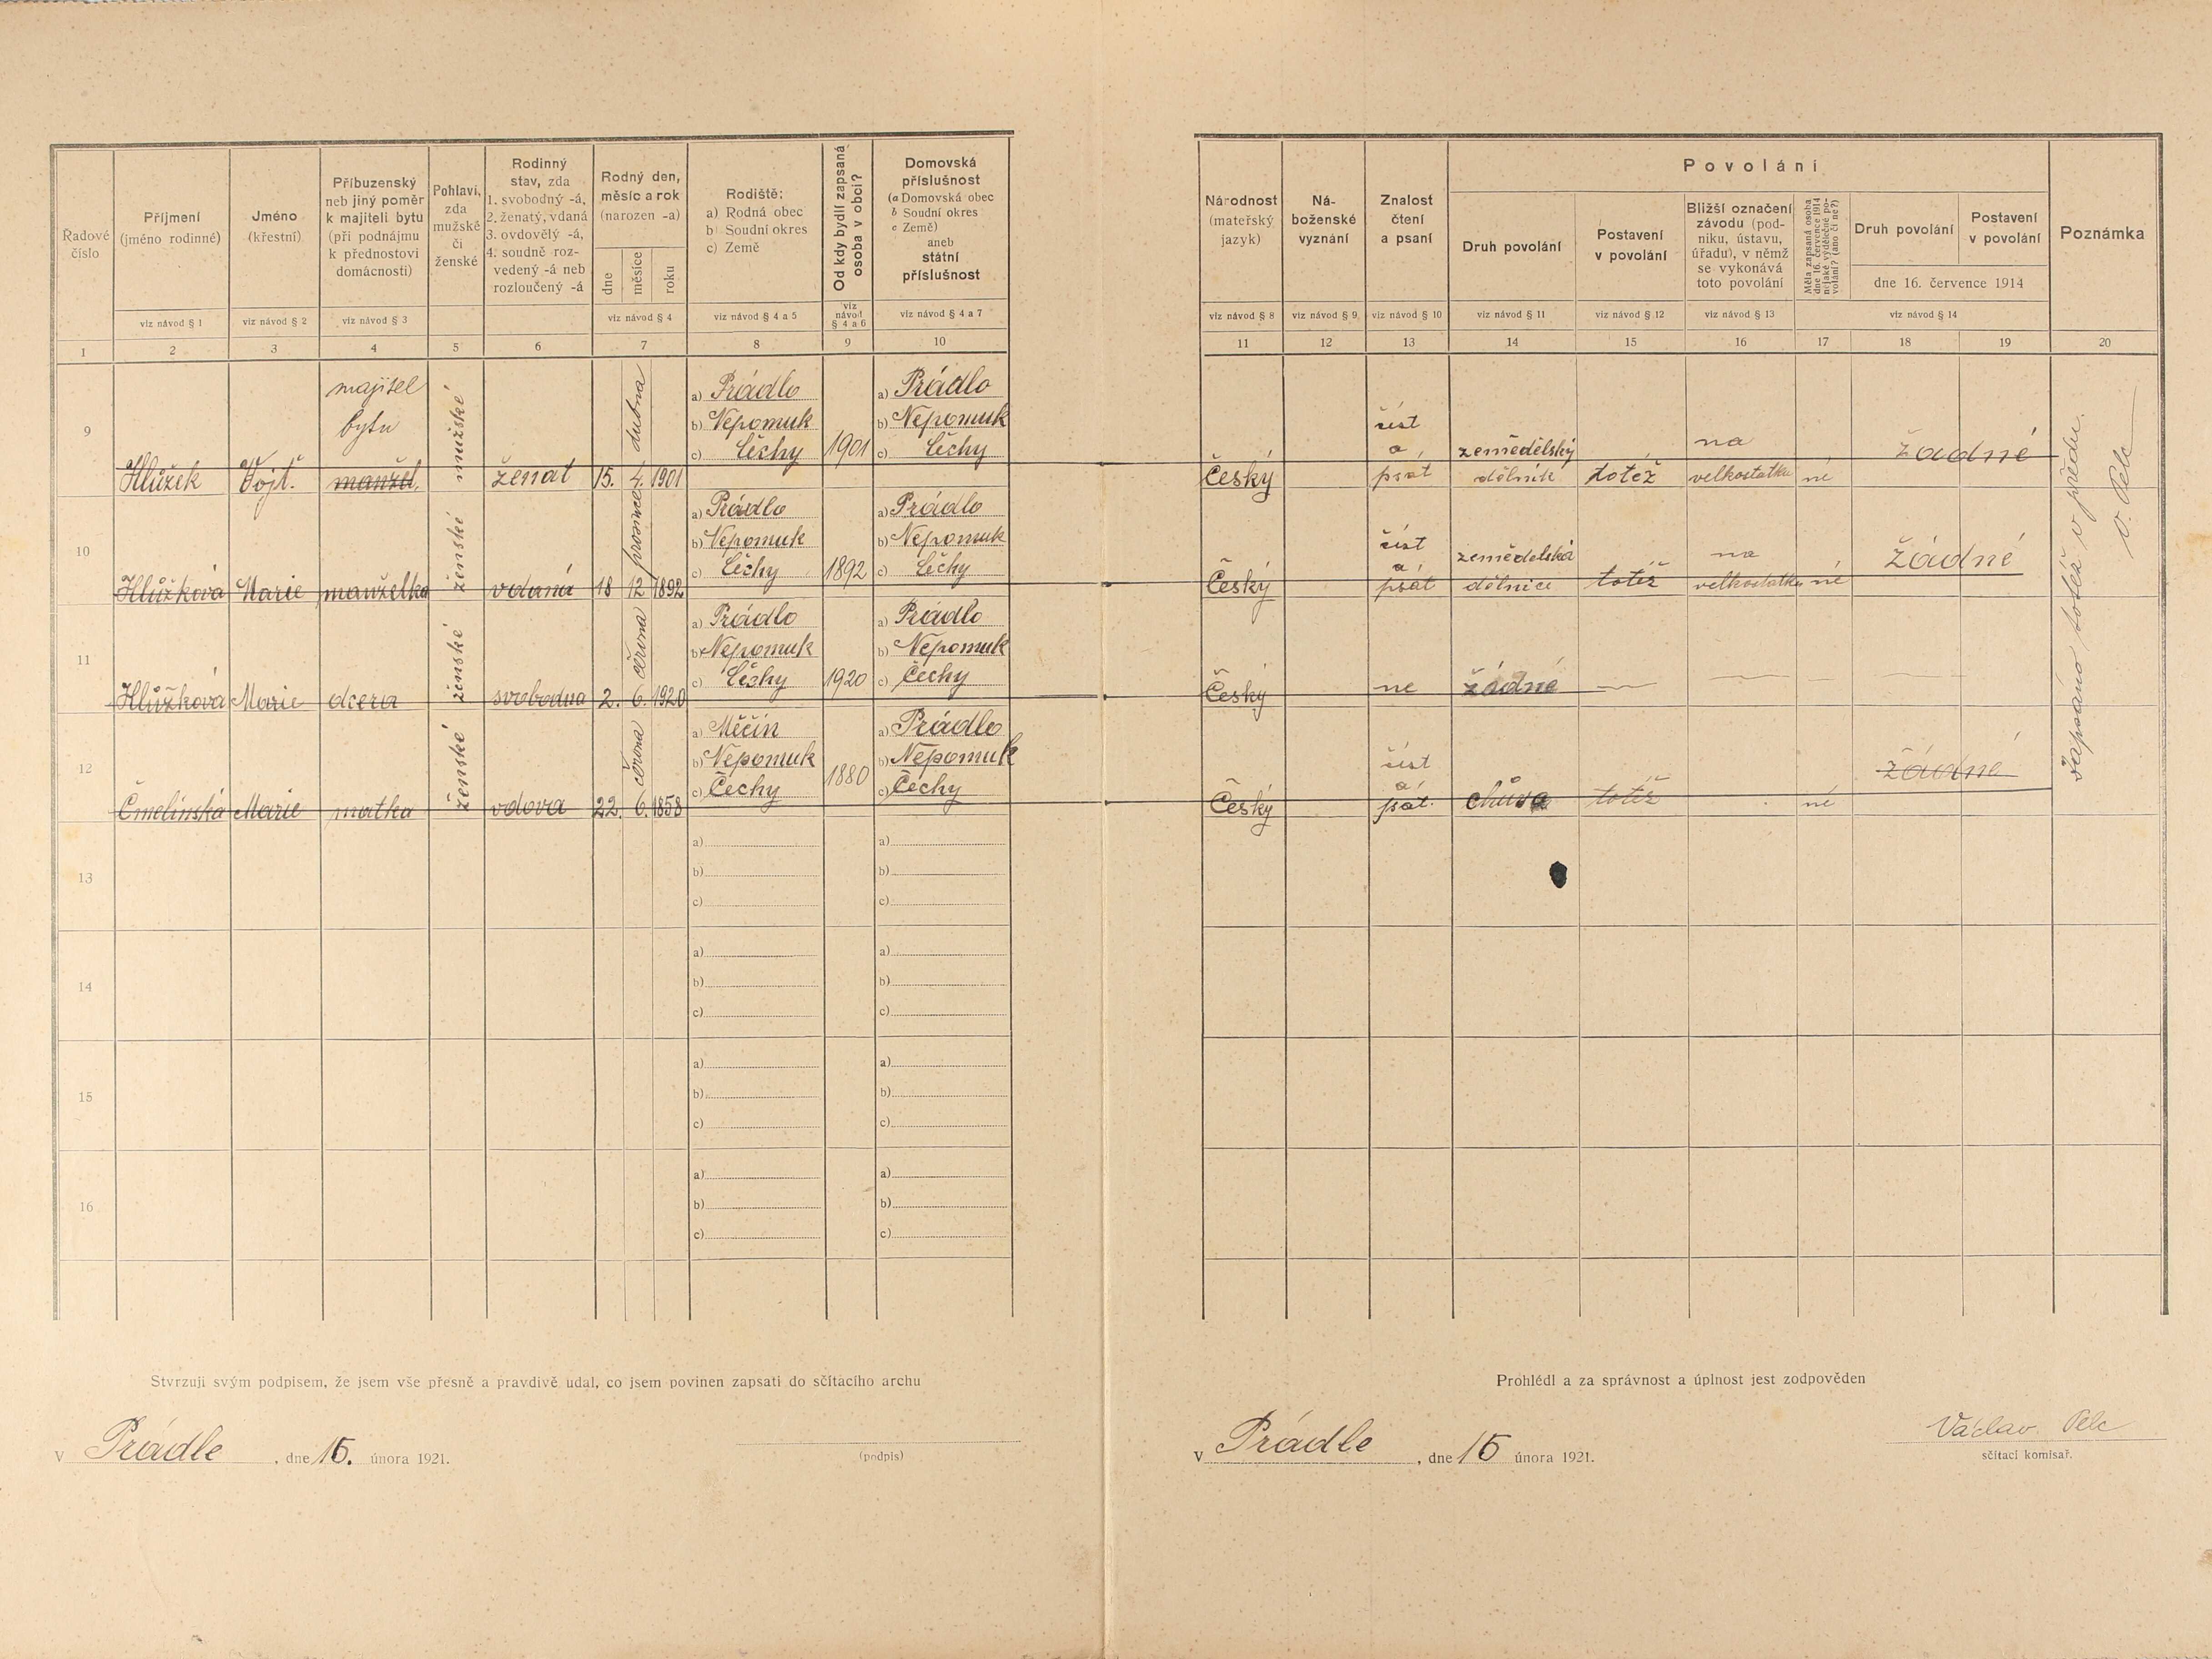 Řadové číslo
Příjmení (jméno rodinné)
viz návod § 1
Jméno (křestní)
viz návod § 2
Příbuzenský neb jiný poměr k majiteli bytu (při podnájmu k přednostovi domácnosti)
viz návod § 3
Pohlaví, zda mužské či ženské
Rodinný stav, zda 1. svobodný -á, 2. ženatý, vdaná 3. ovdovělý -á, 4. soudně rozvedený -á neb rozloučený -á
Rodný den, měsíc a rok (narozen -a)
dne měsíce roku
viz návod § 4
Rodiště: a) Rodná obec b) Soudní okres c) Země
viz návod § 4 a 5
Od kdy bydlí zapsaná osoba v obci?
viz návod § 4 a 6
Domovská příslušnost (a Domovská obec b Soudní okres c Země) aneb státní příslušnost
viz návod § 4 a 7
Národnost (mateřský jazyk)
viz návod § 8
Náboženské vyznání
viz návod § 9
Znalost čtení a psaní
viz návod § 10
Povolání
Druh povolání
viz návod § 11
Postavení v povolání
viz návod § 12
Bližší označení závodu (podniku, ústavu, úřadu), v němž se vykonává toto povolání
viz návod § 13
Měla zapsaná osoba dne 16. července 1914 nějaké výdělečné povolání? (ano či ne?)
Druh povolání
Postavení v povolání
dne 16. července 1914
viz návod § 14
Poznámka
1 2 3 4 5 6 7 8 9 10 11 12 13 14 15 16 17 18 19 20
9
Hlůžek Vojt. majitel bytu manžel. mužské ženat 15. 4. dubna 1901
a) Prádlo
b) Nepomuk
c) Čechy
1901
a) Prádlo
b) Nepomuk
c) Čechy
Český číst a psát zemědělský dělník totéž na velkostatku né žádné
10
Hlůžková Marie manželka ženské vdaná 18 12 prosince 1892
a) Prádlo
b) Nepomuk
c) Čechy
1892
a) Prádlo
b) Nepomuk
c) Čechy
Český číst a psát zemědělská dělnice totéž na velkostatku né žádné
11
Hlůžková Marie dcera ženské svobodna 2. 6. června 1920
a) Prádlo
b) Nepomuk
c) Čechy
1920
a) Prádlo
b) Nepomuk
c) Čechy
Český ne žádné
12
Čmelínská Marie matka ženské vdova 22. 6. června 1858
a) Měčín
b) Nepomuk
c) Čechy
1880
a) Prádlo
b) Nepomuk
c) Čechy
Český číst a psát. chůva totéž né žádné
Zapsáno totéž v předu.
V. Pelc
13
a)
b)
c)
a)
b)
c)
14
a)
b)
c)
a)
b)
c)
15
a)
b)
c)
a)
b)
c)
16
a)
b)
c)
a)
b)
c)
Stvrzuji svým podpisem, že jsem vše přesně a pravdivě udal, co jsem povinen zapsati do sčítacího archu
V Prádle, dne 15. února 1921.
(podpis)
Prohlédl a za správnost a úplnost jest zodpověden
V Prádle, dne 15 února 1921.
Václav Pelc
sčítací komisař.